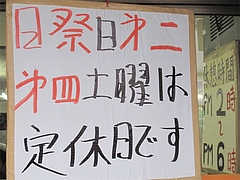 日祭日第二
第四土曜は
定休日です
休憩時間
PM2時
〜
PM6時